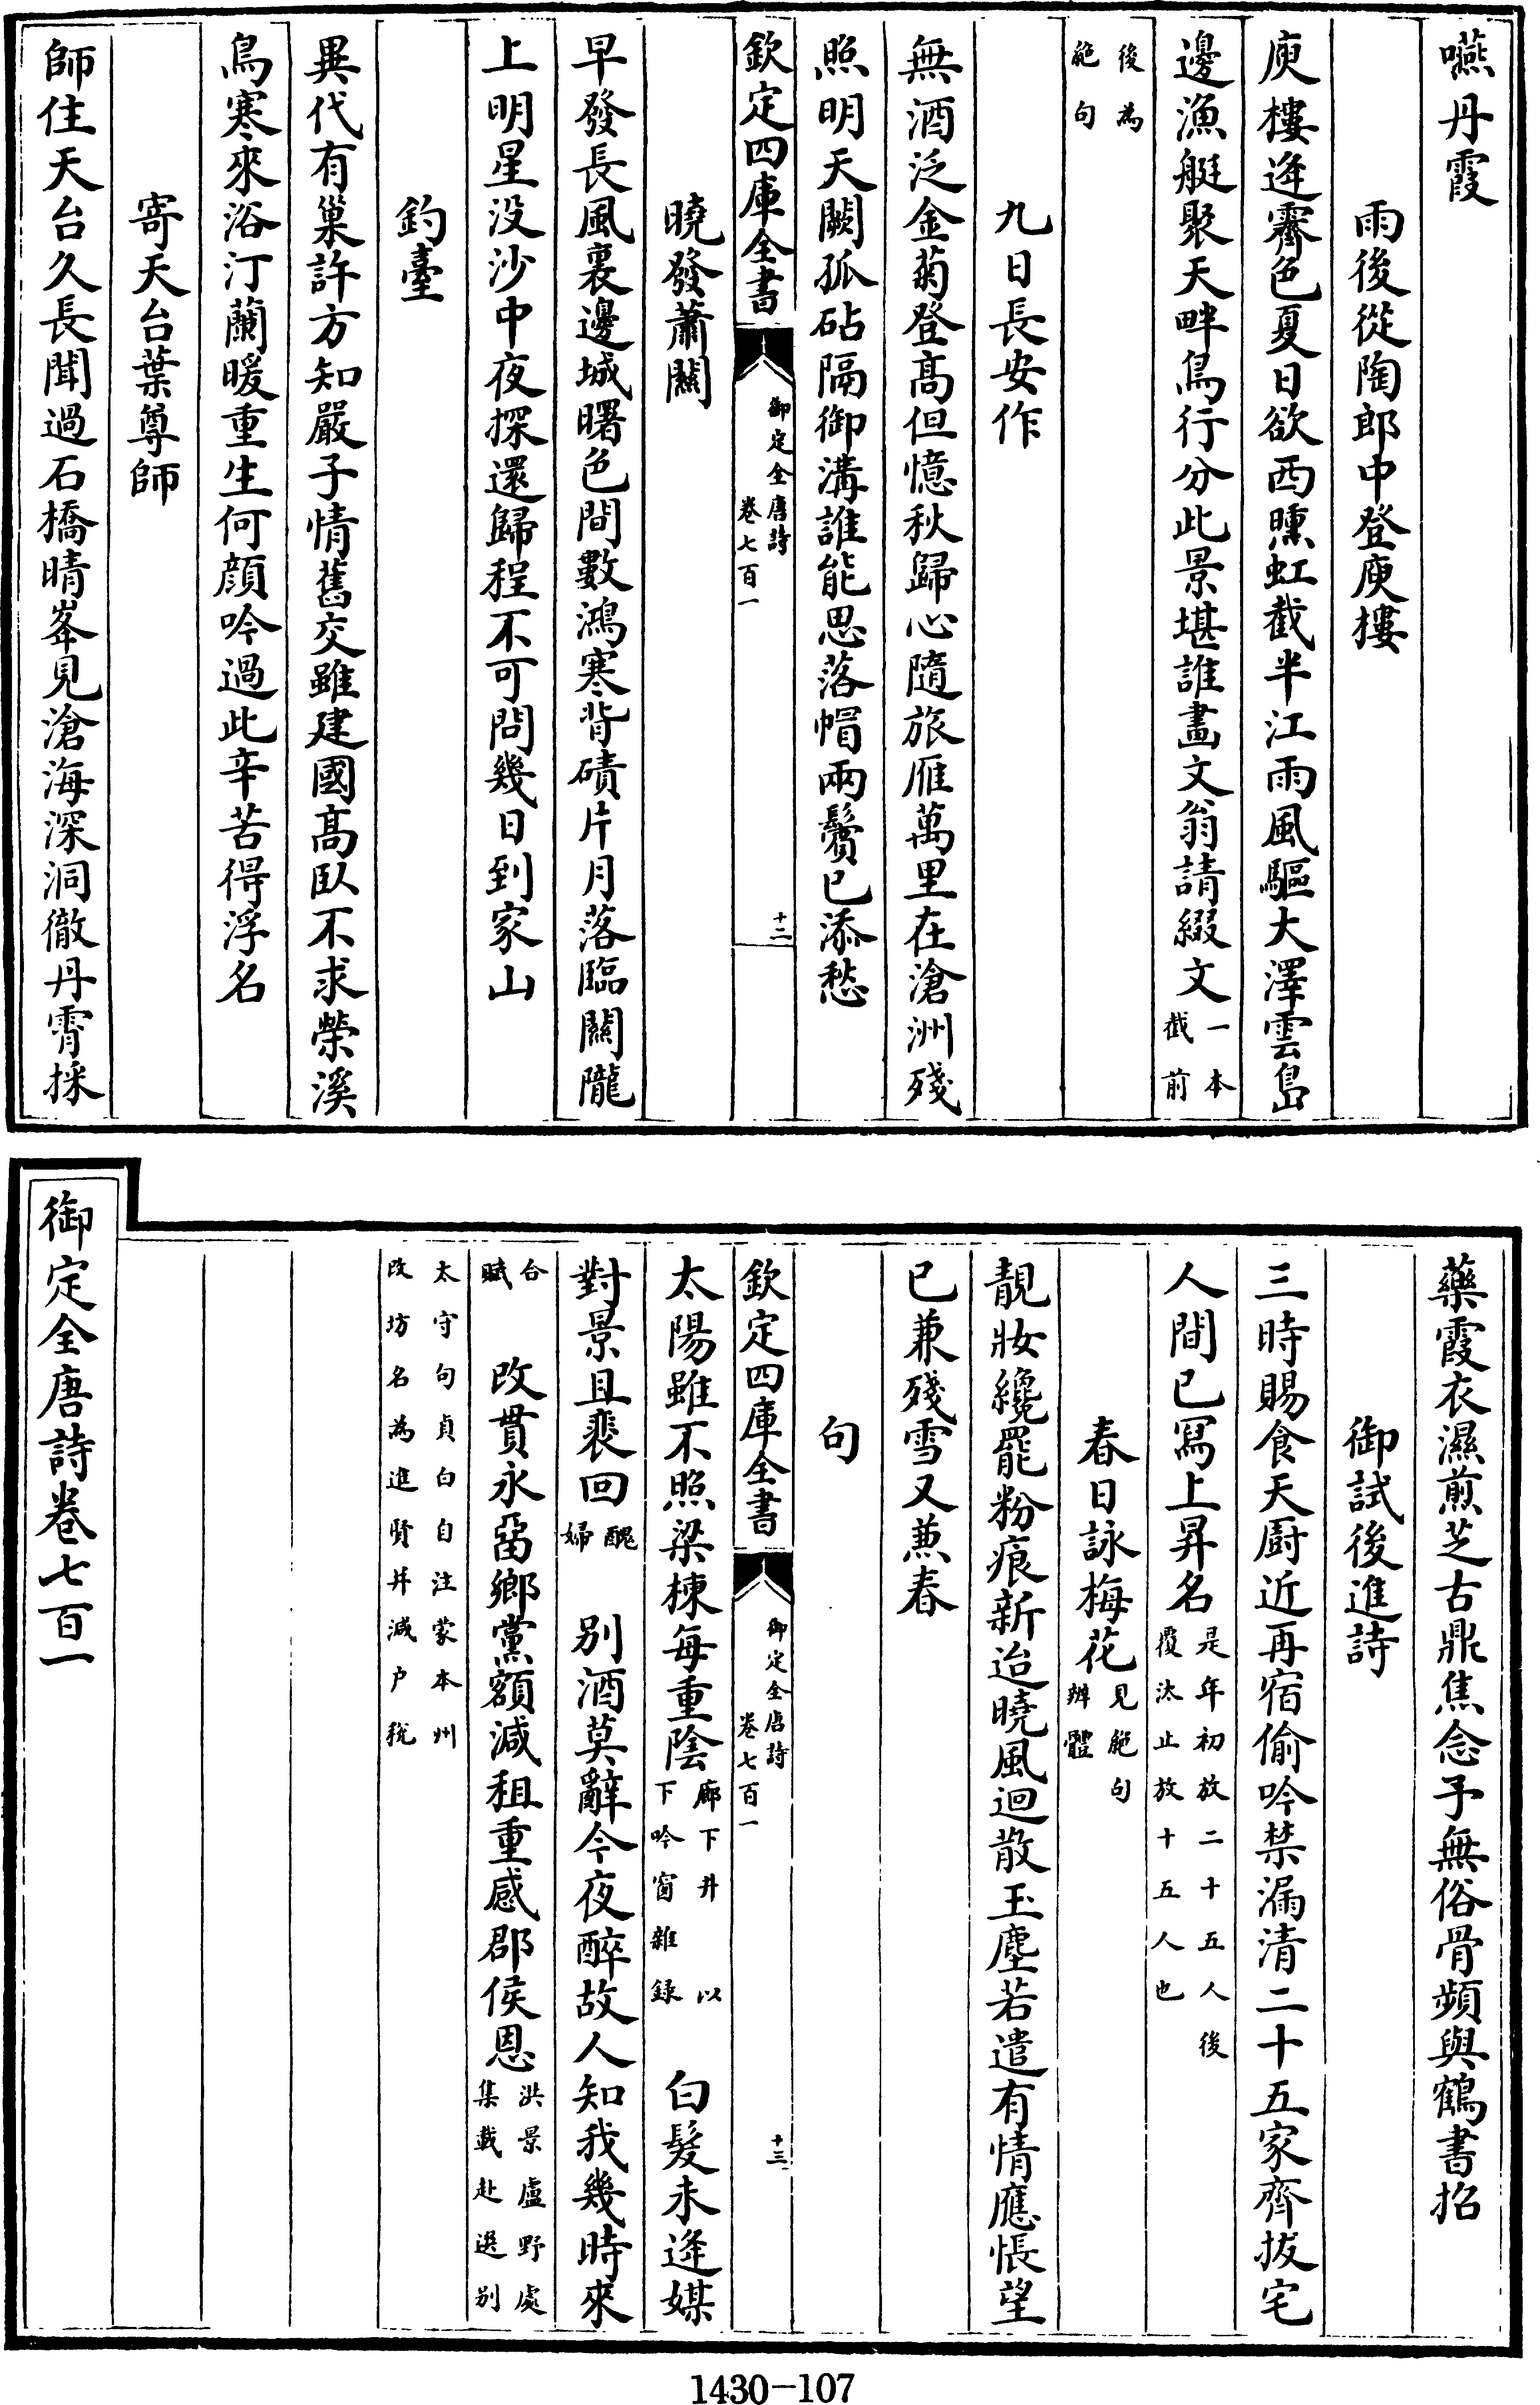 嚥丹霞
雨後從陶郎中登庾樓
庾樓逢霽色夏日欲西曛虹截半江雨風驅大澤雲島
邊漁艇聚天畔鳥行分此景堪誰畫文翁請綴文一本截前
後為絶句
九日長安作
無酒泛金菊登高但憶秋歸心隨旅雁萬里在滄洲殘
照明天闕孤砧隔御溝誰能思落帽兩鬢已添愁
欽定四庫全書 御定全唐詩 卷七百一 十二
曉發蕭關
早發長風裏邊城曙色間數鴻寒背磧片月落臨關隴
上明星没沙中夜探還歸程不可問幾日到家山
釣臺
異代有巢許方知嚴子情舊交雖建國高臥不求榮溪
鳥寒來浴汀蘭暖重生何顔吟過此辛苦得浮名
寄天台葉尊師
師住天台久長聞過石橋晴峯見滄海深洞徹丹霄採
藥霞衣濕煎芝古鼎焦念予無俗骨頻與鶴書招
御試後進詩
三時賜食天厨近再宿偷吟禁漏清二十五家齊拔宅
人間已冩上昇名是年初放二十五人後後覆汰止放十五人也
春日詠梅花見絶句辨體
靚妝纔罷粉痕新迨曉風迴散玉塵若遣有情應悵望
已兼殘雪又兼春
句
欽定四庫全書 御定全唐詩 卷七百一 十三
太陽雖不照梁棟每重陰廊下井 以下吟窗雜録 白髮未逢媒
對景且裴回醜婦 别酒莫辭今夜醉故人知我幾時來
合賦 改貫永留鄉黨額減租重感郡侯恩洪景盧野處集載赴選别
太守句貞白自注蒙本州改坊名為進賢并減户税
御定全唐詩卷七百一
1430-107